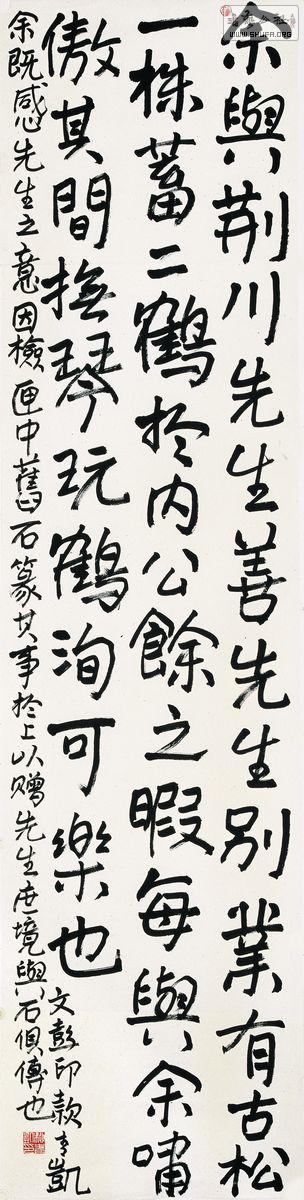 余與荆川先生善先生別業有古松
一株蓄二鶴於内公餘之暇每與余嘯
傲其間撫琴玩鶴洵可樂也
文彭印款
余既感先生之意因檢匣中舊石篆其事於上以贈先生庶境與石俱傳也
WWW.SHUFA.ORG